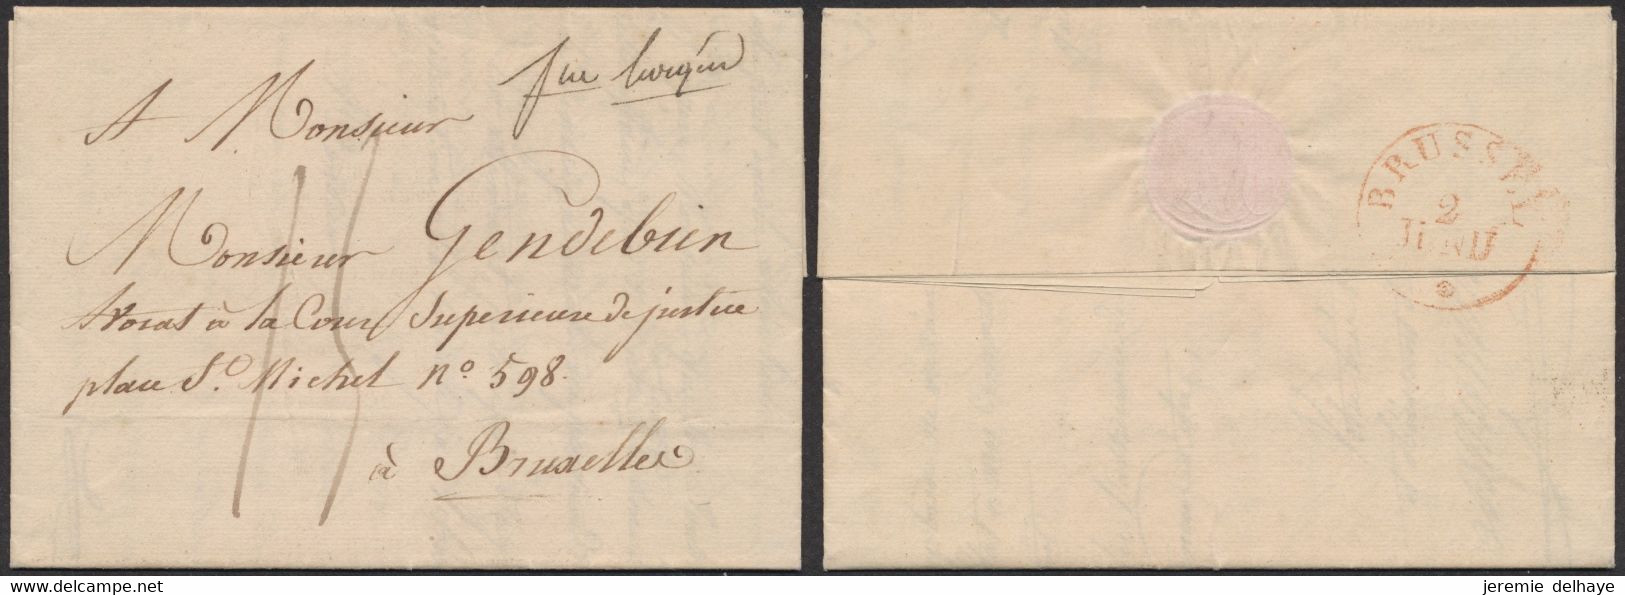 A Monsieur
Monsieur Gendebien
Avocat à la Cour Superieure de justice
place St. Michel no 598.
à Bruxelles
15
BRUSSEL
2
JUNIJ
jeremie delhaye